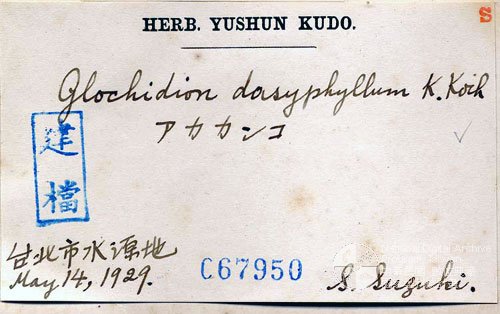 S
HERB. YUSHUN KUDO.
Glochidion dasyphyllum K. Koch
アカカンコ
建檔
台北市水源地
May 14, 1929.
C67950
S. Suzuki.